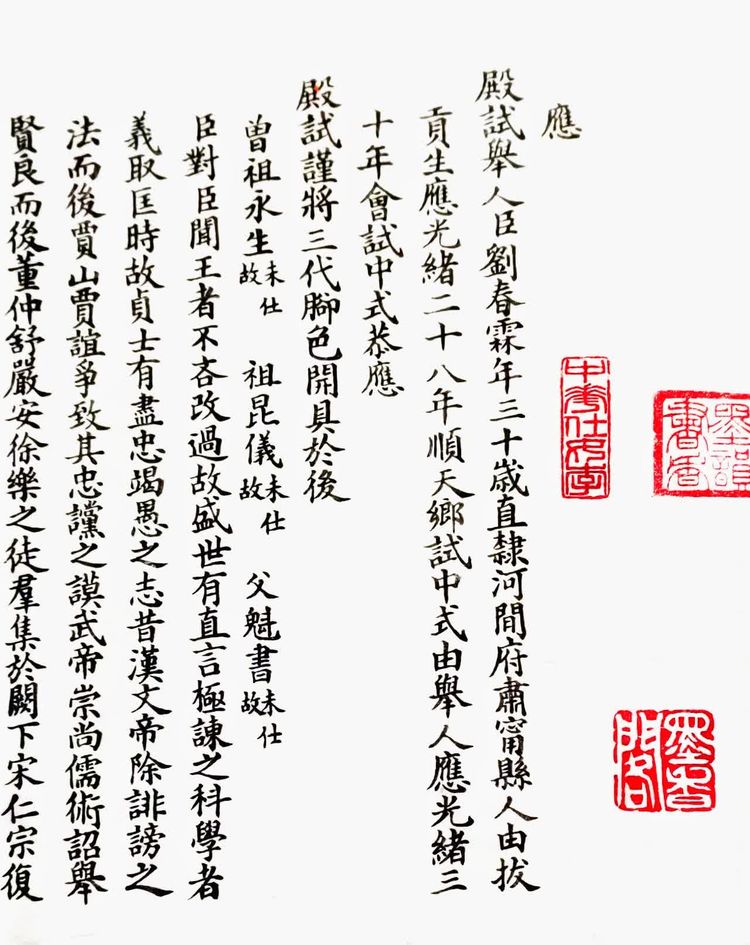 墨韻書香
墨香閣
應
殿試舉人臣劉春霖年三十歲直隸河間府肅甯縣人由拔
貢生應光緒二十八年順天鄉試中式由舉人應光緒三
十年會試中式恭應
殿試謹將三代腳色開具於後
曾祖永生未仕故 祖昆儀未仕故 父魁書未仕故
臣對臣聞王者不吝改過故盛世有直言極諫之科學者
義取匡時故貞士有盡忠竭愚之志昔漢文帝除誹謗之
法而後賈山賈誼爭致其忠讜之謨武帝崇尚儒術詔舉
賢良而後董仲舒嚴安徐樂之徒羣集於闕下宋仁宗復